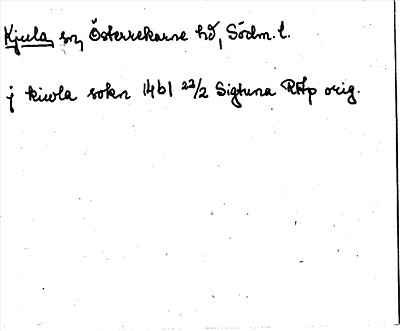 Kjula sn, Österrekarne hd, Södm. l.
j kiwla sokn 1461 22/2 Sigtuna RAp orig.